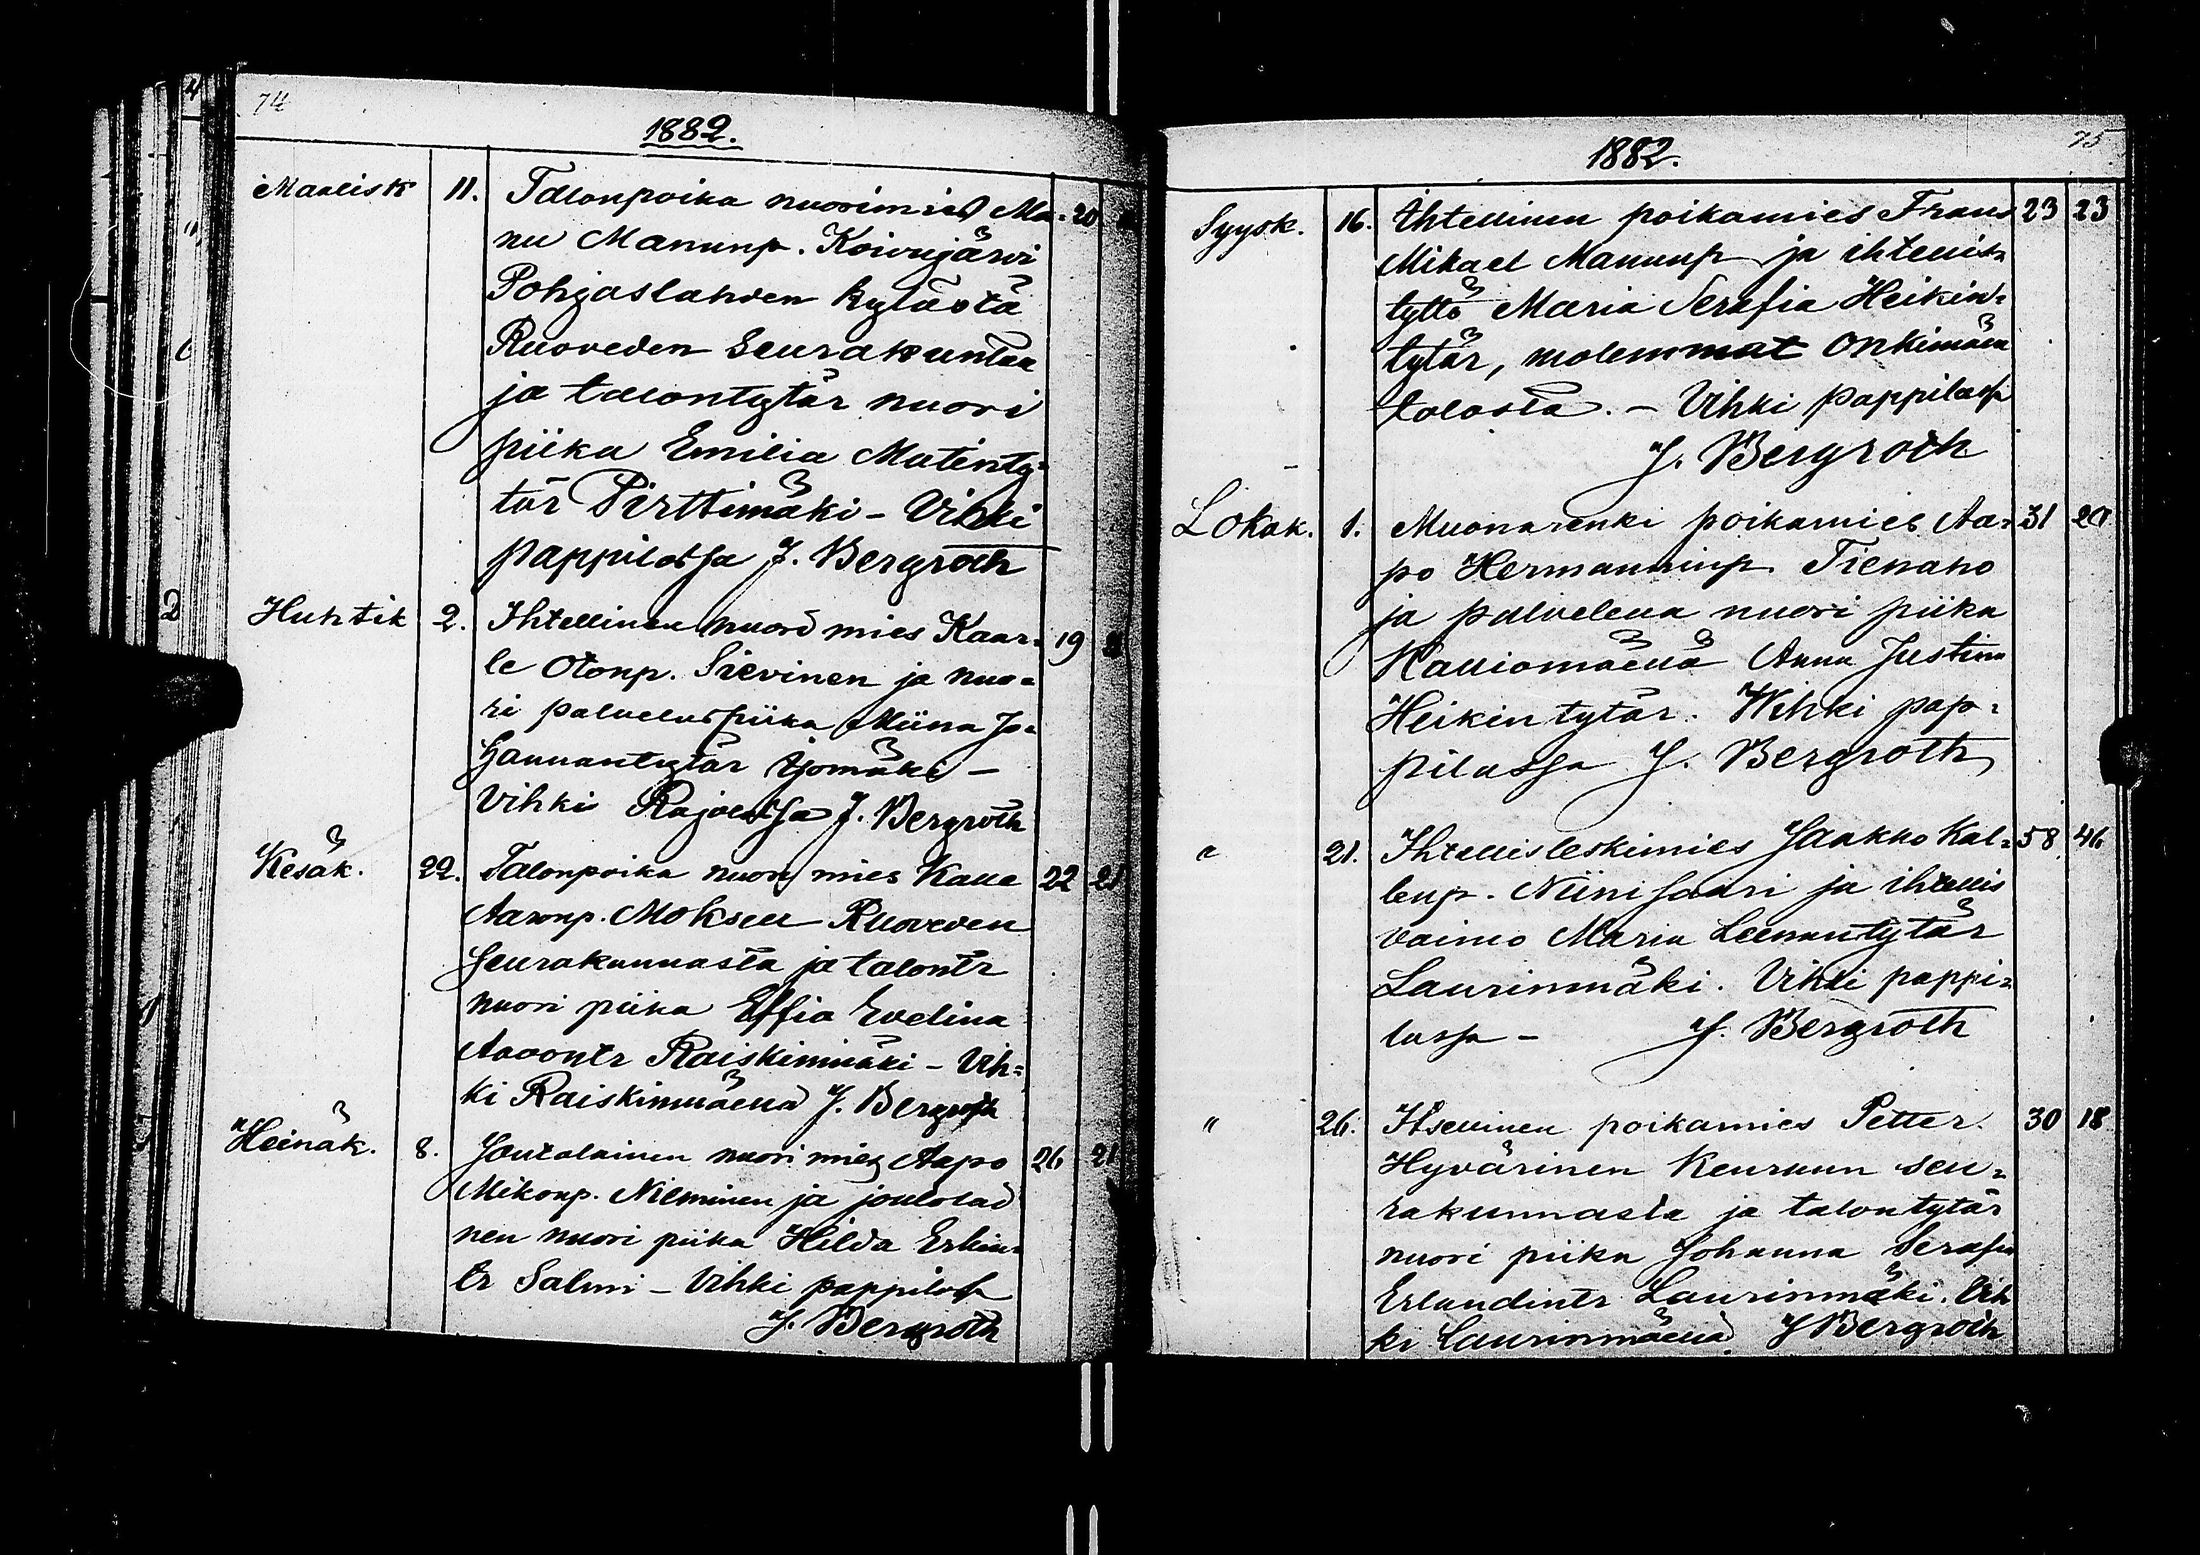 74
1882.
Maalisk 11. Talonpoika nuorimies Ma- 20
nu Manunp. Koivujärvi
Pohjaslahden kylästä
Ruoveden Seurakuntaa
ja talontytär nuori
piika Emilia Matinty-
tär Pirttimäki - Vihki
pappilassa J. Bergroth
Huhtik 2. Ihtellinen nuori mies Kaar- 19
le Otonp. Sievinen ja nuo-
ri palveluspiika Miina Jo-
hannantytär Ijomäki -
Vihki J. Bergroth
Kesäk. 22. Talonpoika nuori mies Kalle 22 21
Aaronp. Moksen Ruoveden
Seurakunnasta ja talontr
nuori piika Effia Evelina
Aarontr Raiskinmäki - Vih=
ki Raiskinmäellä J. Bergroth
Heinäk. 8. Joutolainen nuori mies Aapo 26 21
Mikonp. Nieminen ja joutolai
nen nuori piika Hilda Erkin-
tr Salmi - Vihki pappilassa
J. Bergroth
75
1882.
Syysk. 16. Ihtellinen poikamies Frans 23 23
Mikael Manunp ja ihtellis
tyttö Maria Serafia Heikin=
tytär, molemmat Onkimäen
talosta. - Vihki pappilassa
J. Bergroth
Lokak. 1. Muonarenki poikamies Aa= 31
po Hermanninp Tienaho
ja palveleva nuori piika
Kalliomäellä Anna Justina
Heikintytär. Wihki pap=
pilassa J. Bergroth
" 21. Ihtellis leskimies Jaakko Kal= 58 46
lenp. Niinisaari ja ihtellis
vaimo Maria Leenantytär
Laurinmäki. Vihki pappi=
lassa - J. Bergroth
" 26. Itsellinen poikamies Petter 30 18
Hyvärinen Keuruun seu=
rakunnasta ja talontytär
nuori piika Johanna Serafia
Erlandintr Laurinmäki. Vih
ki Laurinmäellä J Bergroth